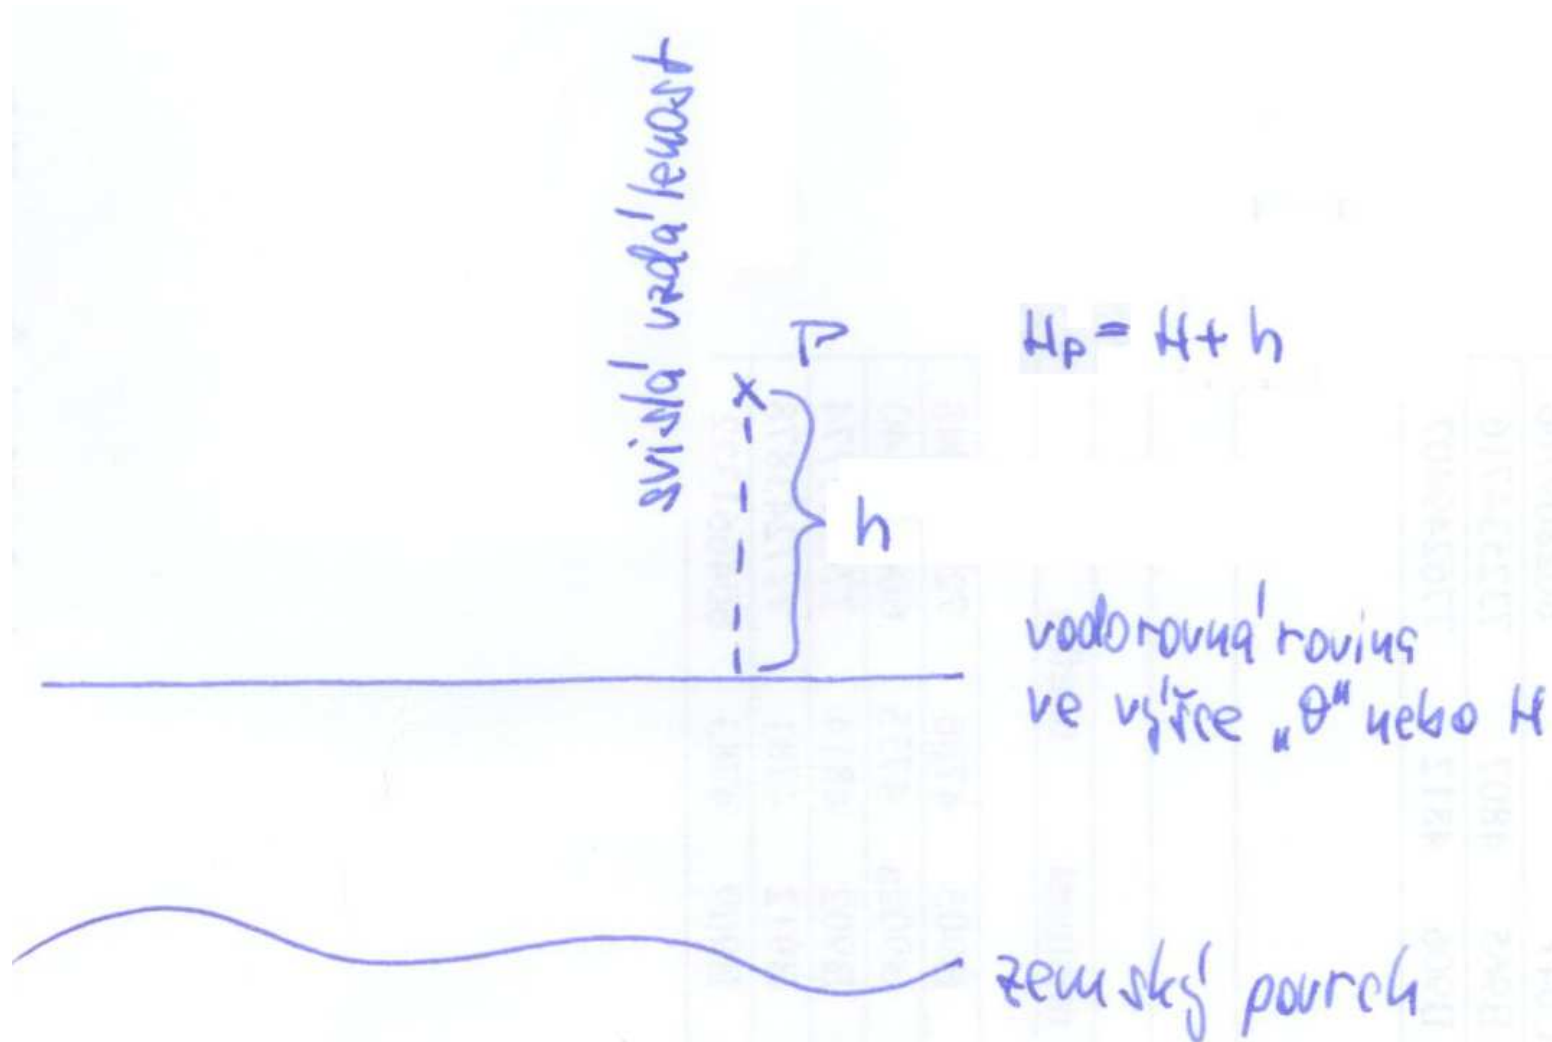 svislá vzdálenost
P
H_P = H + h
h
vodorovná rovina
ve výšce „0" nebo H
zemský povrch